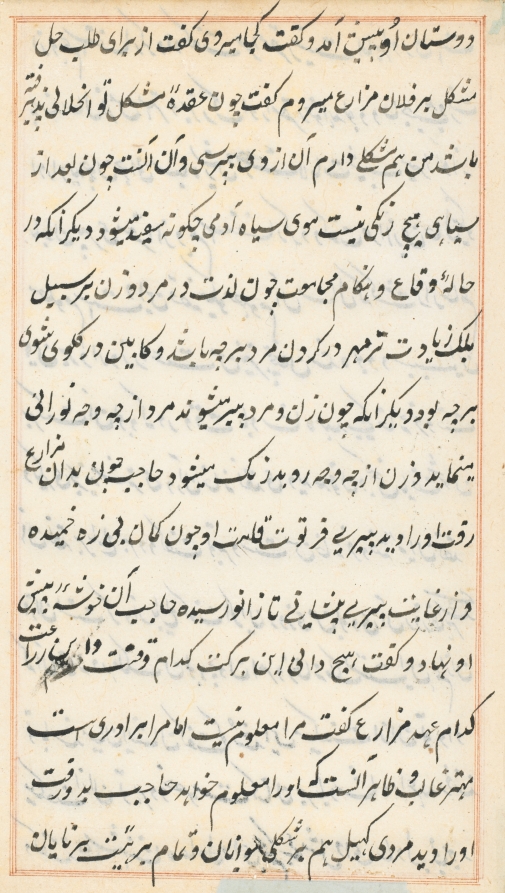 دوستان او پیش آمد و گفت کجا میروی گفت از برای طلب حل
مشکل بر فلان مزارع میروم گفت چون عقدهٔ مشکل تو انحلالی پذیرفته
باشد من هم مشکلی دارم آن از وی بپرسی و آن آنست چون بعد از
سیاهی هیچ رنگی نیست موی سیاه آدمی چگونه سفید میشود دیگر آنکه در
حالهٔ وقاع و هنگام مجامعت چون لذت در مرد و زن بر سبیل
بلک زیادت تر مهر در گردن مرد بر چه باشد و کابین در گلوی شوی
بر چه بود دیگر آنکه چون زن و مرد پیر میشوند مرد از چه وجه نورانی
مینماید و زن از چه وجه رو بد رنگ میشود حاجب چون بدان مزارع
رفت او را دید پیری فرتوت قامت او چون کمان بی زه خمیده
و از غایت پیری پیشانی تا زانو رسیده حاجب آن خوشه پیش
او نهاد و گفت هیچ دانی این برکت کدام وقت و این زراعت
کدام عهد مزارع گفت مرا معلوم نیست اما مرا برادری است
مهتر غالب و ظاهر آنست که او را معلوم خواهد حاجب بدو رفت
او را دید مردی کهیل هم بر شکل نوانان و تمام بر هیئت برنایان